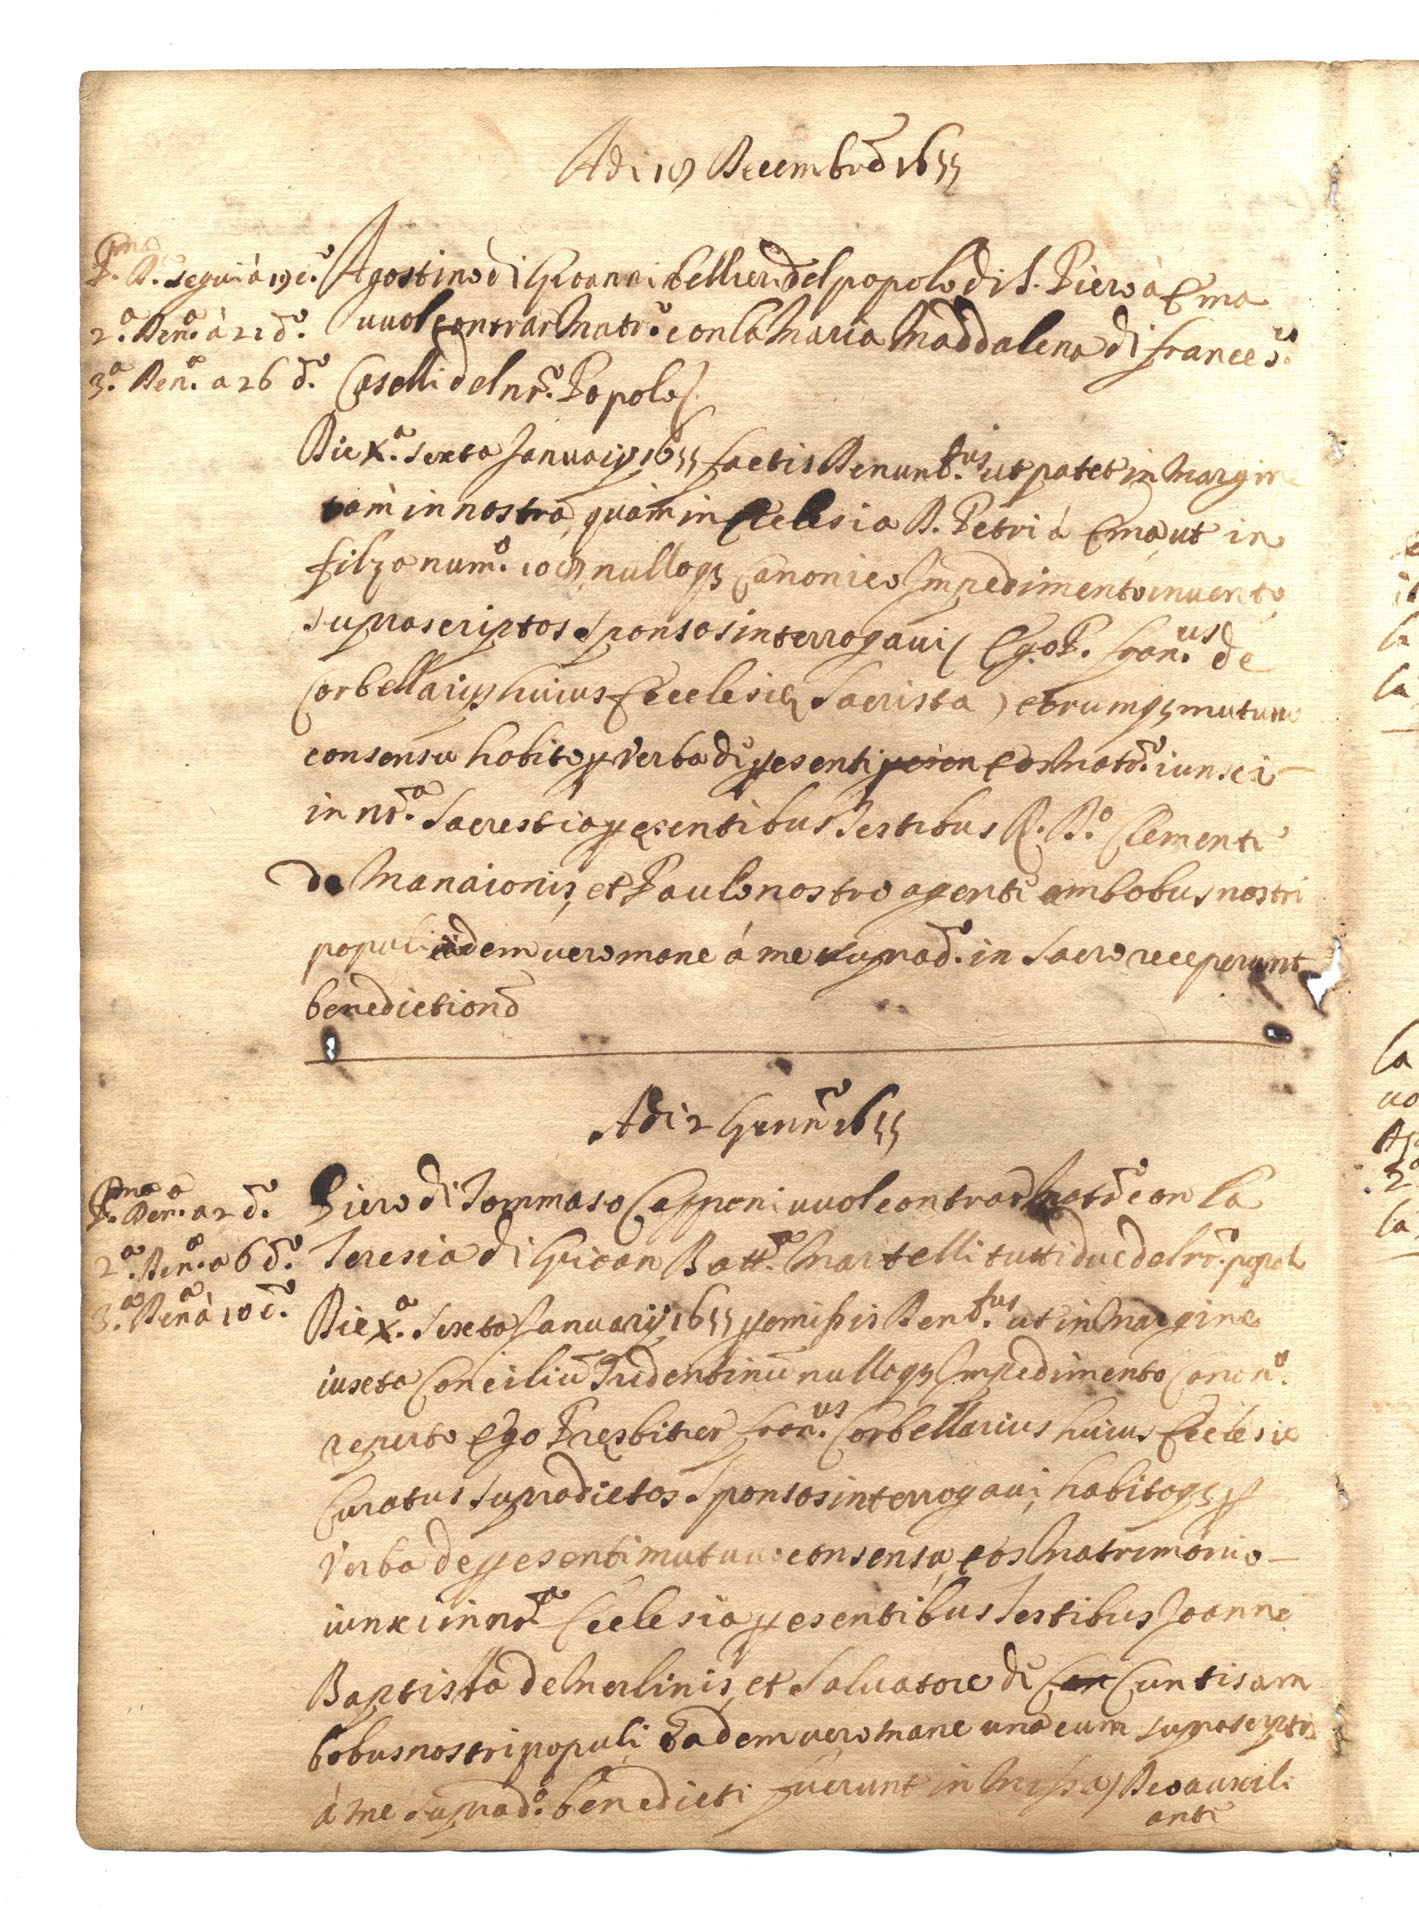 Adi 19 Decembre 1655
P.ma D. seguì à 19 d.o
2.a Den.a à 21 d.o
3.a Den.a a 26 d.o
Agostino di Giovanni bellieri del popolo di S. Piero à Ema
vuol contrar Matr.o con la Maria Maddalena di Franc.co
Caselli del nr.o Popolo
Die X.a sexta Januarij 1655 factis Denunt.bus ut patet in Margine
tam in nostra, quàm in Ecclesia D. Petri à Ema, ut in
filza num.o nulloq3 Canonico Impedimento invento
suprascriptos Sponsos interrogavi ( Ego P. Fran.cus de
Corbellarijs huius Ecclesię Sacrista ) eorumq3 mutuo
consensu habito p verba de pesenti eos Matr.o iunxi
in nr.a Sacrestia pesentibus Testibus R. D.o Clemente
de Manaionis, et Paulo nostro agente ambobus nostri
populi eadem vero mane à me suprad.o in Sacro receperunt
benedictione
Adi 2 Genn.o 1655
P.ma Den.a a 2 d.o
2.a Den.a a 6 d.o
3.a Den.a à 10 d.o
Piero di Tommaso Capponi vuol contrar Matr.o con la
Teresia di Giovan Batt.a Martelli tutti due del nr.o popolo
Die X.a Sexta Januarij 1655 pemissis Den.bus ut in Margine
iuxta Conciliũ Tridentinũ nulloq3 Impedimento Canon.o
reperto Ego Presbiter Fran.cus Corbellarius huius Ecclesię
Curatus supradictos Sponsos interrogavi, habitoq3 p
Verba de pesenti mutuo consensu, eos Matrimonio
iunxi in nr.a Ecclesia pesentibus Testibus Joanne
Baptista de Merlinis, et Salvatore de Cuntis am
bobus nostri populi, eadem vero mane una cum suprascriptis
à me suprad.o benedicti fuerunt in Missa, Deo auxili
ante